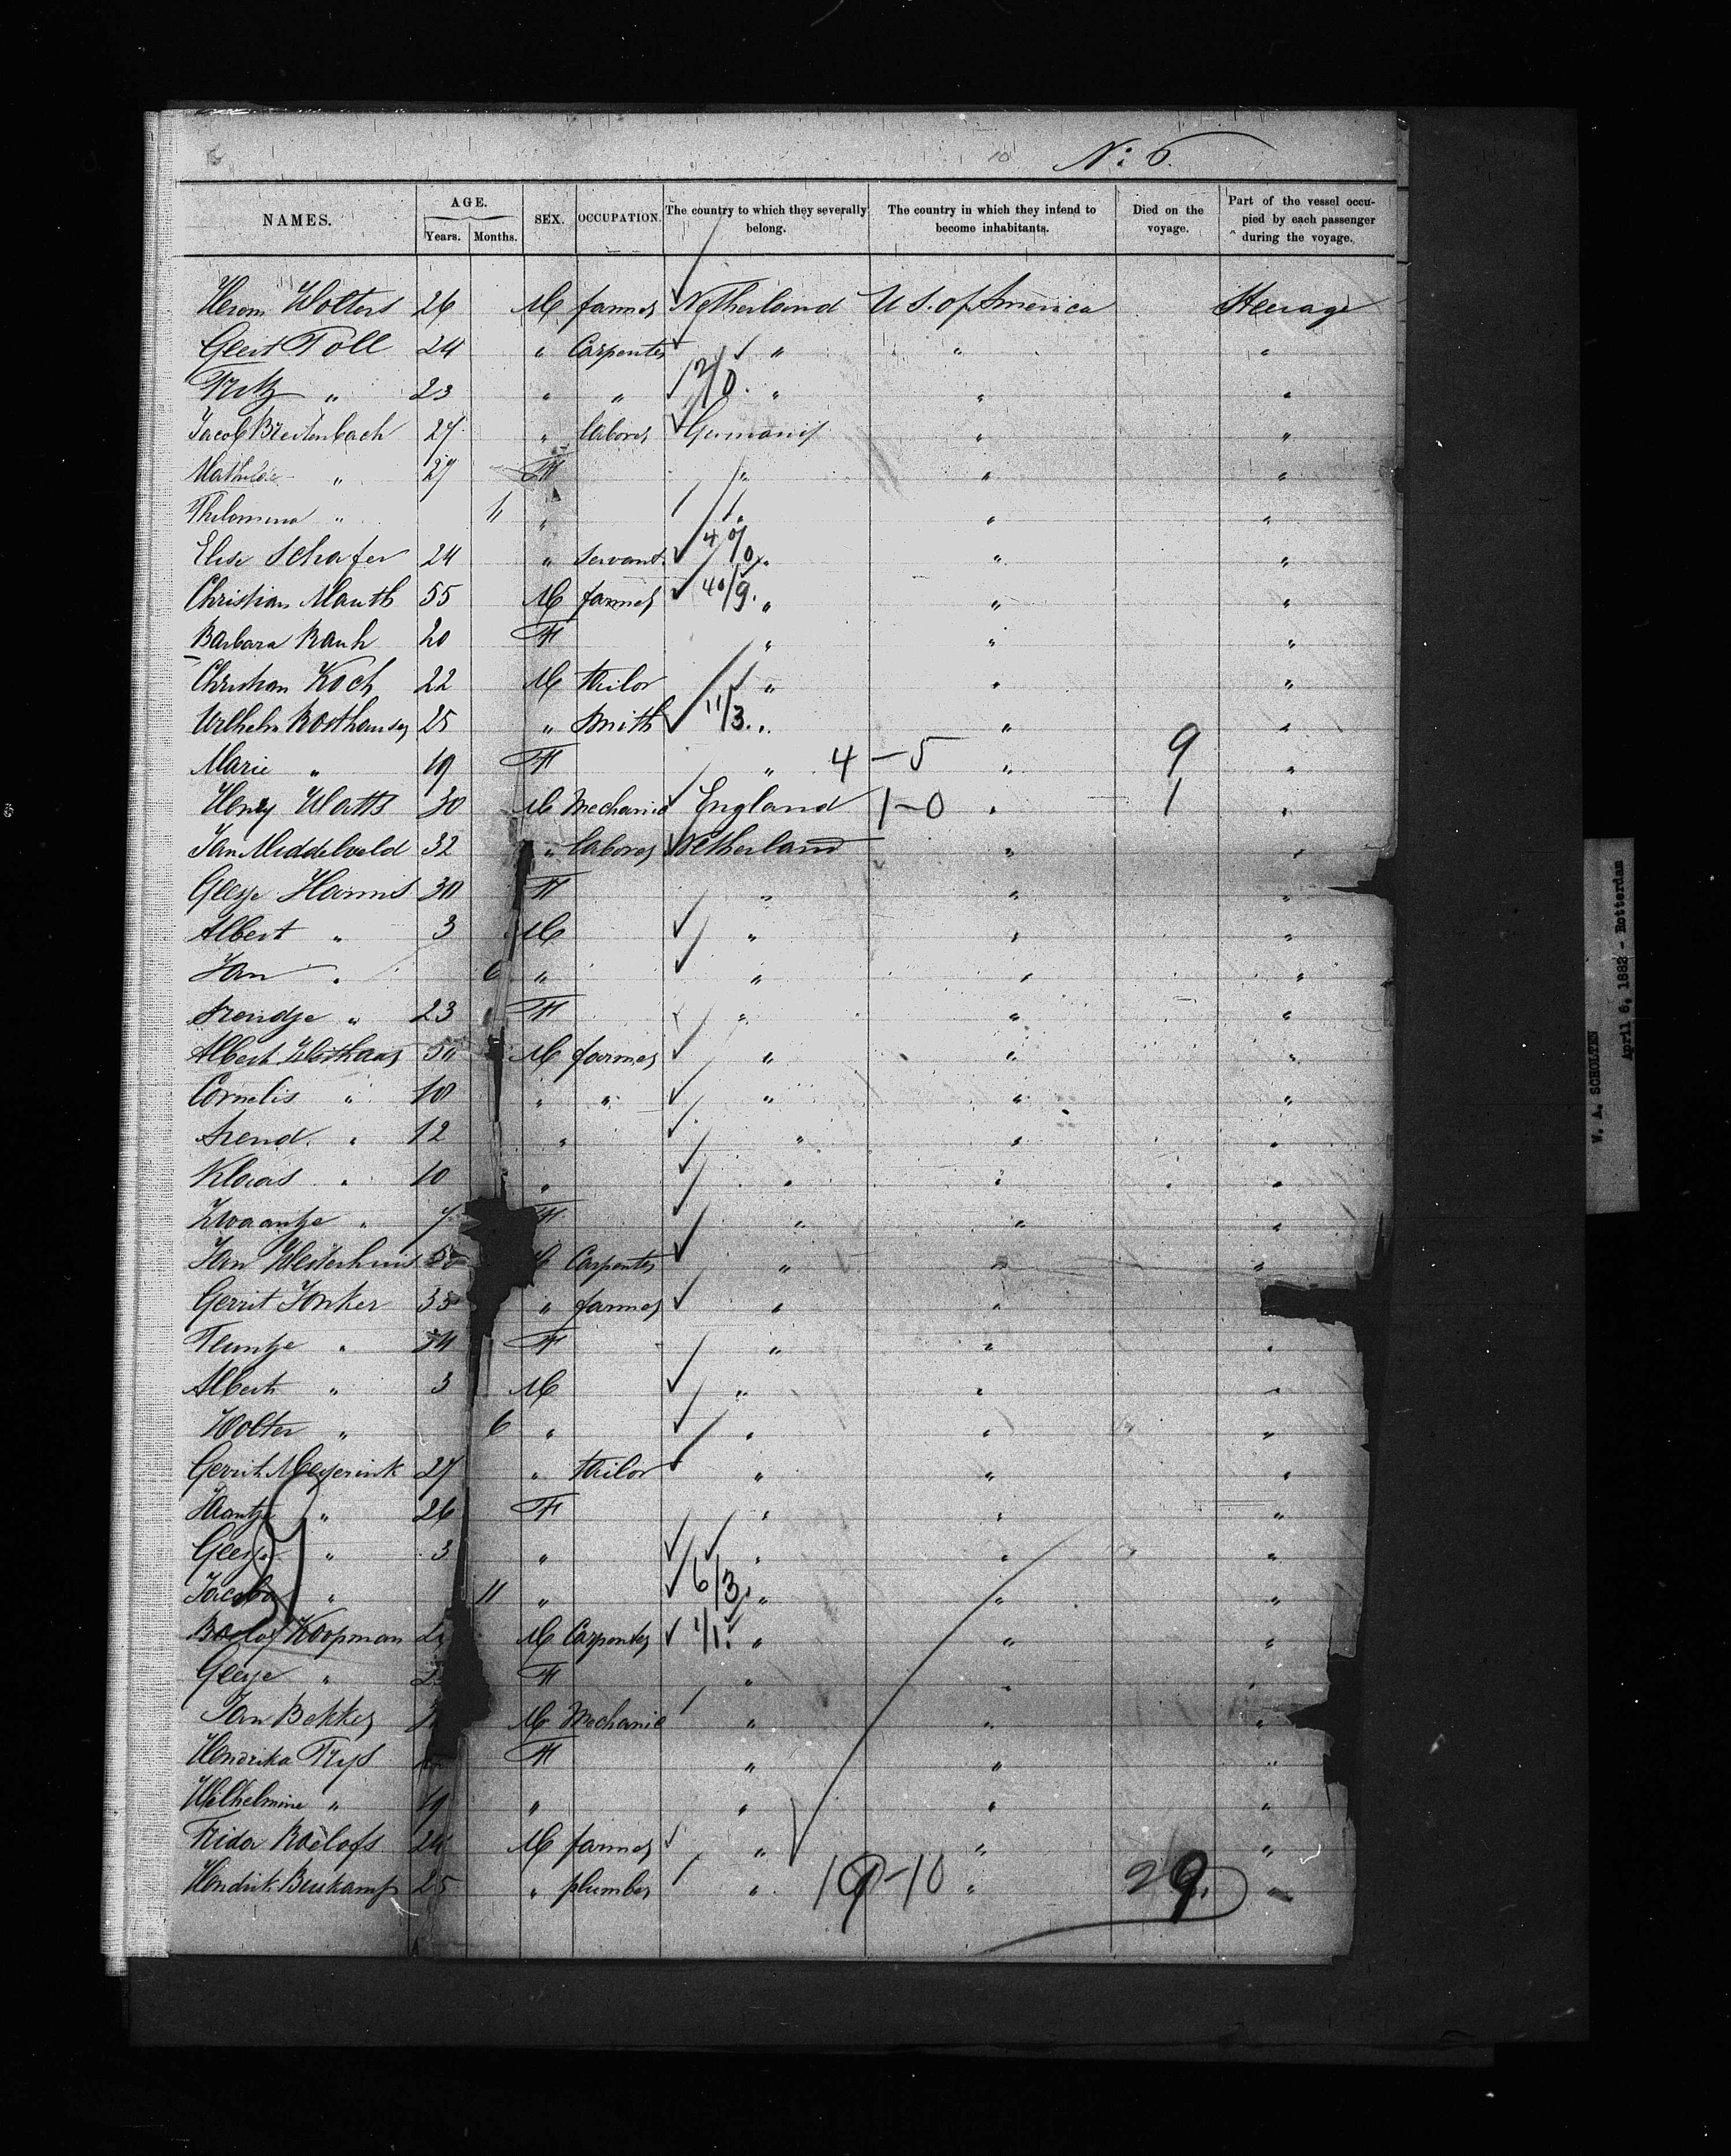 No 6.
NAMES. AGE. Years. Months. SEX. OCCUPATION. The country to which they severally belong. The country in which they intend to become inhabitants. Died on the voyage. Part of the vessel occupied by each passenger during the voyage.
Wolters 26 M farmer Netherland U S. of America Steerage
Geert Toll 24 " Carpenter " " "
Fritz " 23 " " 2/0. " " "
Jacob Breitenbach 27 " laborer Germany " "
Mathilde " 27 F " " "
Philomena " 11 " " " "
Elise Schafer 24 " servant 4/0 " " "
Christian Mauth 55 M farmer 40/9. " " "
Barbara Rauh 20 F " " "
Christian Koch 22 M tailor " " "
Wilhelm 25 " Smith 11/3. " " "
Marie " 19 F " 4-5 " 9 "
Henry Watts 30 M Mechanic England 1-0 " 1 "
Jan Middelveld 32 " laborer Netherland " "
Geesje Harms 30 F " " "
Albert " 3 M " " "
Jan " 6 " " " "
Arendje " 23 F " " "
Albert M farmer " " "
Cornelis " 18 " " " " "
Arend " 12 " " " "
Klaas " 10 " " " "
Zwaantje " 7 F " " "
Jan Westerhuis 50 Carpenter " " "
Gerrit Jonker 35 " farmer " " "
Teuntje " 34 F " " "
Albert " 3 M " " "
Wolter " 6 " " " "
Gerrit Meyerink 27 " tailor " " "
" 26 F " " "
Geesje " 3 " " " "
Jacoba " 11 " 6/3. " " "
Roelof Koopman M Carpenter 1/1. " " "
Geesje " F " " "
Jan Bekker M Mechanic " " "
Hendrika Prys F " " "
Wilhelmine " 19 " " " "
Roelofs 24 M farmer " " "
Hendrik Beukamp 25 " plumber " 19-10 " 29. "
W. A. SCHOLTEN
April 6, 1882 - Rotterdam